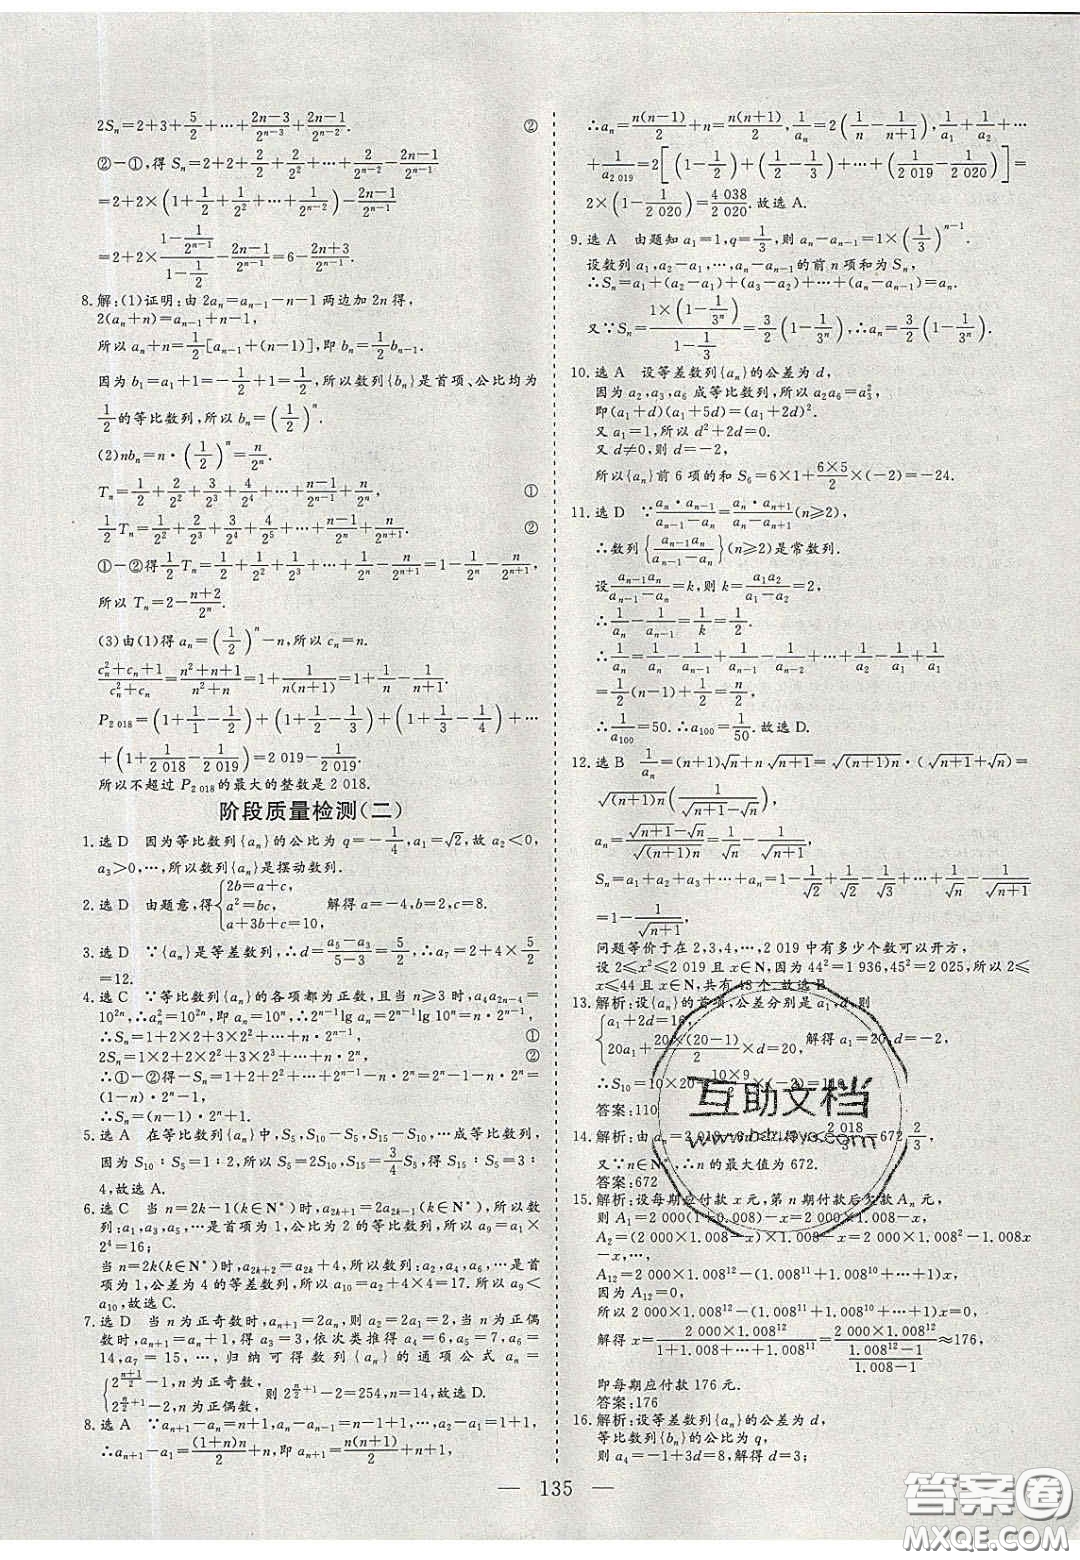 2Sₙ=2+3+5/2+…+(2n-3)/2ⁿ⁻³+(2n-1)/2ⁿ⁻². ②
②-①,得 Sₙ=2+2+2/2+2/2²+…+2/2ⁿ⁻²-(2n-1)/2ⁿ⁻¹
=2+2×(1+1/2+1/2²+…+1/2ⁿ⁻²)-(2n-1)/2ⁿ⁻¹
=2+2×(1-1/2ⁿ⁻¹)/(1-1/2)-(2n-1)/2ⁿ⁻¹=6-(2n+3)/2ⁿ⁻¹.
8.解:(1)证明:由 2aₙ=aₙ₋₁-n-1 两边加 2n 得,
2(aₙ+n)=aₙ₋₁+n-1,
所以 aₙ+n=1/2[aₙ₋₁+(n-1)],即 bₙ=1/2bₙ₋₁.
因为 b₁=a₁+1=-1/2+1=1/2,所以数列{bₙ}是首项、公比均为
1/2的等比数列,所以 bₙ=(1/2)ⁿ.
(2)nbₙ=n·(1/2)ⁿ=n/2ⁿ.
Tₙ=1/2+2/2²+3/2³+4/2⁴+…+(n-1)/2ⁿ⁻¹+n/2ⁿ, ①
1/2Tₙ=1/2²+2/2³+3/2⁴+4/2⁵+…+(n-1)/2ⁿ+n/2ⁿ⁺¹. ②
①-②得1/2Tₙ=1/2+1/2²+1/2³+…+1/2ⁿ-n/2ⁿ⁺¹=1-1/2ⁿ-n/2ⁿ⁺¹,
所以 Tₙ=2-(n+2)/2ⁿ.
(3)由(1)得 aₙ=(1/2)ⁿ-n,所以 cₙ=n.
(cₙ²+cₙ+1)/(cₙ²+cₙ)=(n²+n+1)/(n²+n)=1+1/(n(n+1))=1+1/n-1/(n+1).
P₂ ₀₁₈=(1+1/1-1/2)+(1+1/2-1/3)+(1+1/3-1/4)+…
+(1+1/2 018-1/2 019)=2 019-1/2 019.
所以不超过 P₂ ₀₁₈的最大的整数是 2 018.
阶段质量检测(二)
1.选 D 因为等比数列{aₙ}的公比为 q=-1/4,a₁=√2,故 a₂<0,
a₃>0,…,所以数列{aₙ}是摆动数列.
2.选 D 由题意,得{2b=a+c, a²=bc, a+3b+c=10, 解得 a=-4,b=2,c=8.
3.选 D ∵{aₙ}是等差数列,∴d=(a₅-a₃)/(5-3)=5/2,∴a₇=2+4×5/2
=12.
4.选 C ∵等比数列{aₙ}的各项都为正数,且当 n≥3 时,a₄a₂ₙ₋₄=
10²ⁿ,∴aₙ²=10²ⁿ,即 aₙ=10ⁿ,∴2ⁿ⁻¹lg aₙ=2ⁿ⁻¹lg 10ⁿ=n·2ⁿ⁻¹,
∴Sₙ=1+2×2+3×2²+…+n·2ⁿ⁻¹, ①
2Sₙ=1×2+2×2²+3×2³+…+n·2ⁿ, ②
∴①-②得-Sₙ=1+2+2²+…+2ⁿ⁻¹-n·2ⁿ=2ⁿ-1-n·2ⁿ=
(1-n)·2ⁿ-1,∴Sₙ=(n-1)·2ⁿ+1.
5.选 A 在等比数列{aₙ}中,S₅,S₁₀-S₅,S₁₅-S₁₀,…成等比数列,
因为 S₁₀∶S₅=1∶2,所以 S₅=2S₁₀,S₁₅=3/4S₅,得 S₁₅∶S₅=3∶
4,故选 A.
6.选 C 当 n=2k-1(k∈N*)时,a₂ₖ₊₁=2a₂ₖ₋₁(k∈N*),所以数
列:a₁,a₃,a₅,…是首项为 1,公比为 2 的等比数列,所以 a₉=1×
2⁴=16;
当 n=2k(k∈N*)时,a₂ₖ₊₂=a₂ₖ+4,所以数列:a₂,a₄,a₆,…是首
项为 1,公差为 4 的等差数列,所以 a₁₀=a₂+4×4=17.所以 a₉<
a₁₀,故选 C.
7.选 D 当 n 为正奇数时,aₙ₊₁=2aₙ,则 a₂=2a₁=2,当 n 为正偶
数时,aₙ₊₁=aₙ+1,得 a₃=3,依次类推得 a₄=6,a₅=7,a₆=14,
a₇=15,…,归纳可得数列{aₙ}的通项公式 aₙ=
{2^((n+1)/2)-1,n为正奇数, 2^(n/2+1)-2,n为正偶数, 则 2^(n/2+1)-2=254,n=14,故选 D.
8.选 A ∵aₙ₊₁-aₙ=n+1,aₙ-aₙ₋₁=n-1+1,…,a₂-a₁=1+1,
∴aₙ₊₁-a₁=(1+n)n/2+n,即 aₙ₊₁=n(n+1)/2+n+1,
∴aₙ=n(n-1)/2+n=n(n+1)/2,1/aₙ=2(1/n-1/(n+1)),1/a₁+1/a₂+…
+1/a₂ ₀₁₉=2[(1-1/2)+(1/2-1/3)+…+(1/2 019-1/2 020)]=
2×(1-1/2 020)=4 038/2 020.故选 A.
9.选 A 由题知 a₁=1,q=1/3,则 aₙ-aₙ₋₁=1×(1/3)ⁿ⁻¹.
设数列 a₁,a₂-a₁,…,aₙ-aₙ₋₁的前 n 项和为 Sₙ,
∴Sₙ=a₁+(a₂-a₁)+(a₃-a₂)+…+(aₙ-aₙ₋₁)=aₙ.
又∵Sₙ=1×(1-1/3ⁿ)/(1-1/3)=3/2(1-1/3ⁿ),∴aₙ=3/2(1-1/3ⁿ).
10.选 A 设等差数列{aₙ}的公差为 d,
因为 a₂,a₃,a₆ 成等比数列,所以 a₂a₆=a₃²,
即(a₁+d)(a₁+5d)=(a₁+2d)².
又 a₁=1,所以 d²+2d=0.
又 d≠0,则 d=-2,
所以{aₙ}前 6 项的和 S₆=6×1+(6×5)/2×(-2)=-24.
11.选 D ∵aₙ·aₙ₋₁/(aₙ₋₁-aₙ)=aₙ·aₙ₊₁/(aₙ-aₙ₊₁)(n≥2),
∴数列{aₙ₋₁aₙ/(aₙ₋₁-aₙ)}(n≥2)是常数列.
设aₙ₋₁aₙ/(aₙ₋₁-aₙ)=k,则 k=a₁a₂/(a₁-a₂)=2,
∴1/aₙ-1/aₙ₋₁=1/k=1/2.
∴1/aₙ=1/aₙ-1/aₙ₋₁+1/aₙ₋₁-1/aₙ₋₂+…+1/a₂-1/a₁+1/a₁
=1/2(n-1)+1/2=n/2,
∴1/a₁₀₀=50.∴a₁₀₀=1/50.故选 D.
12.选 B 1/aₙ=(n+1)√n+n√(n+1)=√((n+1)n)·(√(n+1)+√n)=
√((n+1)n)(1/(√(n+1)-√n)),
aₙ=(√(n+1)-√n)/√((n+1)n)=1/√n-1/√(n+1),
Sₙ=a₁+a₂+a₃+…+aₙ=1-1/√2+1/√2-1/√3+…+1/√n-1/√(n+1)
=1-1/√(n+1),
问题等价于在 2,3,4,…,2 019 中有多少个数可以开方,
设 2≤x²≤2 019 且 x∈N,因为 44²=1 936,45²=2 025,所以 2≤
x≤44 且 x∈N,共有 43 个.故选 B.
13.解析:设{aₙ}的首项,公差分别是 a₁,d,则
{a₁+2d=16, 20a₁+20×(20-1)/2×d=20, 解得 a₁=20,d=-2,
∴S₁₀=10×20+(10×9)/2×(-2)=110.
答案:110
14.解析:由 aₙ=2 018-3n>0,得 n<2 018/3=672 2/3,
又∵n∈N*,∴n 的最大值为 672.
答案:672
15.解析:设每期应付款 x 元,第 n 期付款后欠款 Aₙ 元,
则 A₁=2 000(1+0.008)-x=2 000×1.008-x,
A₂=(2 000×1.008-x)×1.008-x=2 000×1.008²-1.008x-x,
…,
A₁₂=2 000×1.008¹²-(1.008¹¹+1.008¹⁰+…+1)x,
因为 A₁₂=0,
所以 2 000×1.008¹²-(1.008¹¹+1.008¹⁰+…+1)x=0,
解得 x=2 000×1.008¹²/(1+1.008+…+1.008¹¹)=2 000×1.008¹²/((1.008¹²-1)/(1.008-1))≈176,
即每期应付款 176 元.
答案:176
16.解析:设等差数列{aₙ}的公差为 d,
等比数列{bₙ}的公比为 q,
则 a₄=-1+3d=8,解得 d=3;
— 135 —
互助文档
答案圈
MXQE.COM